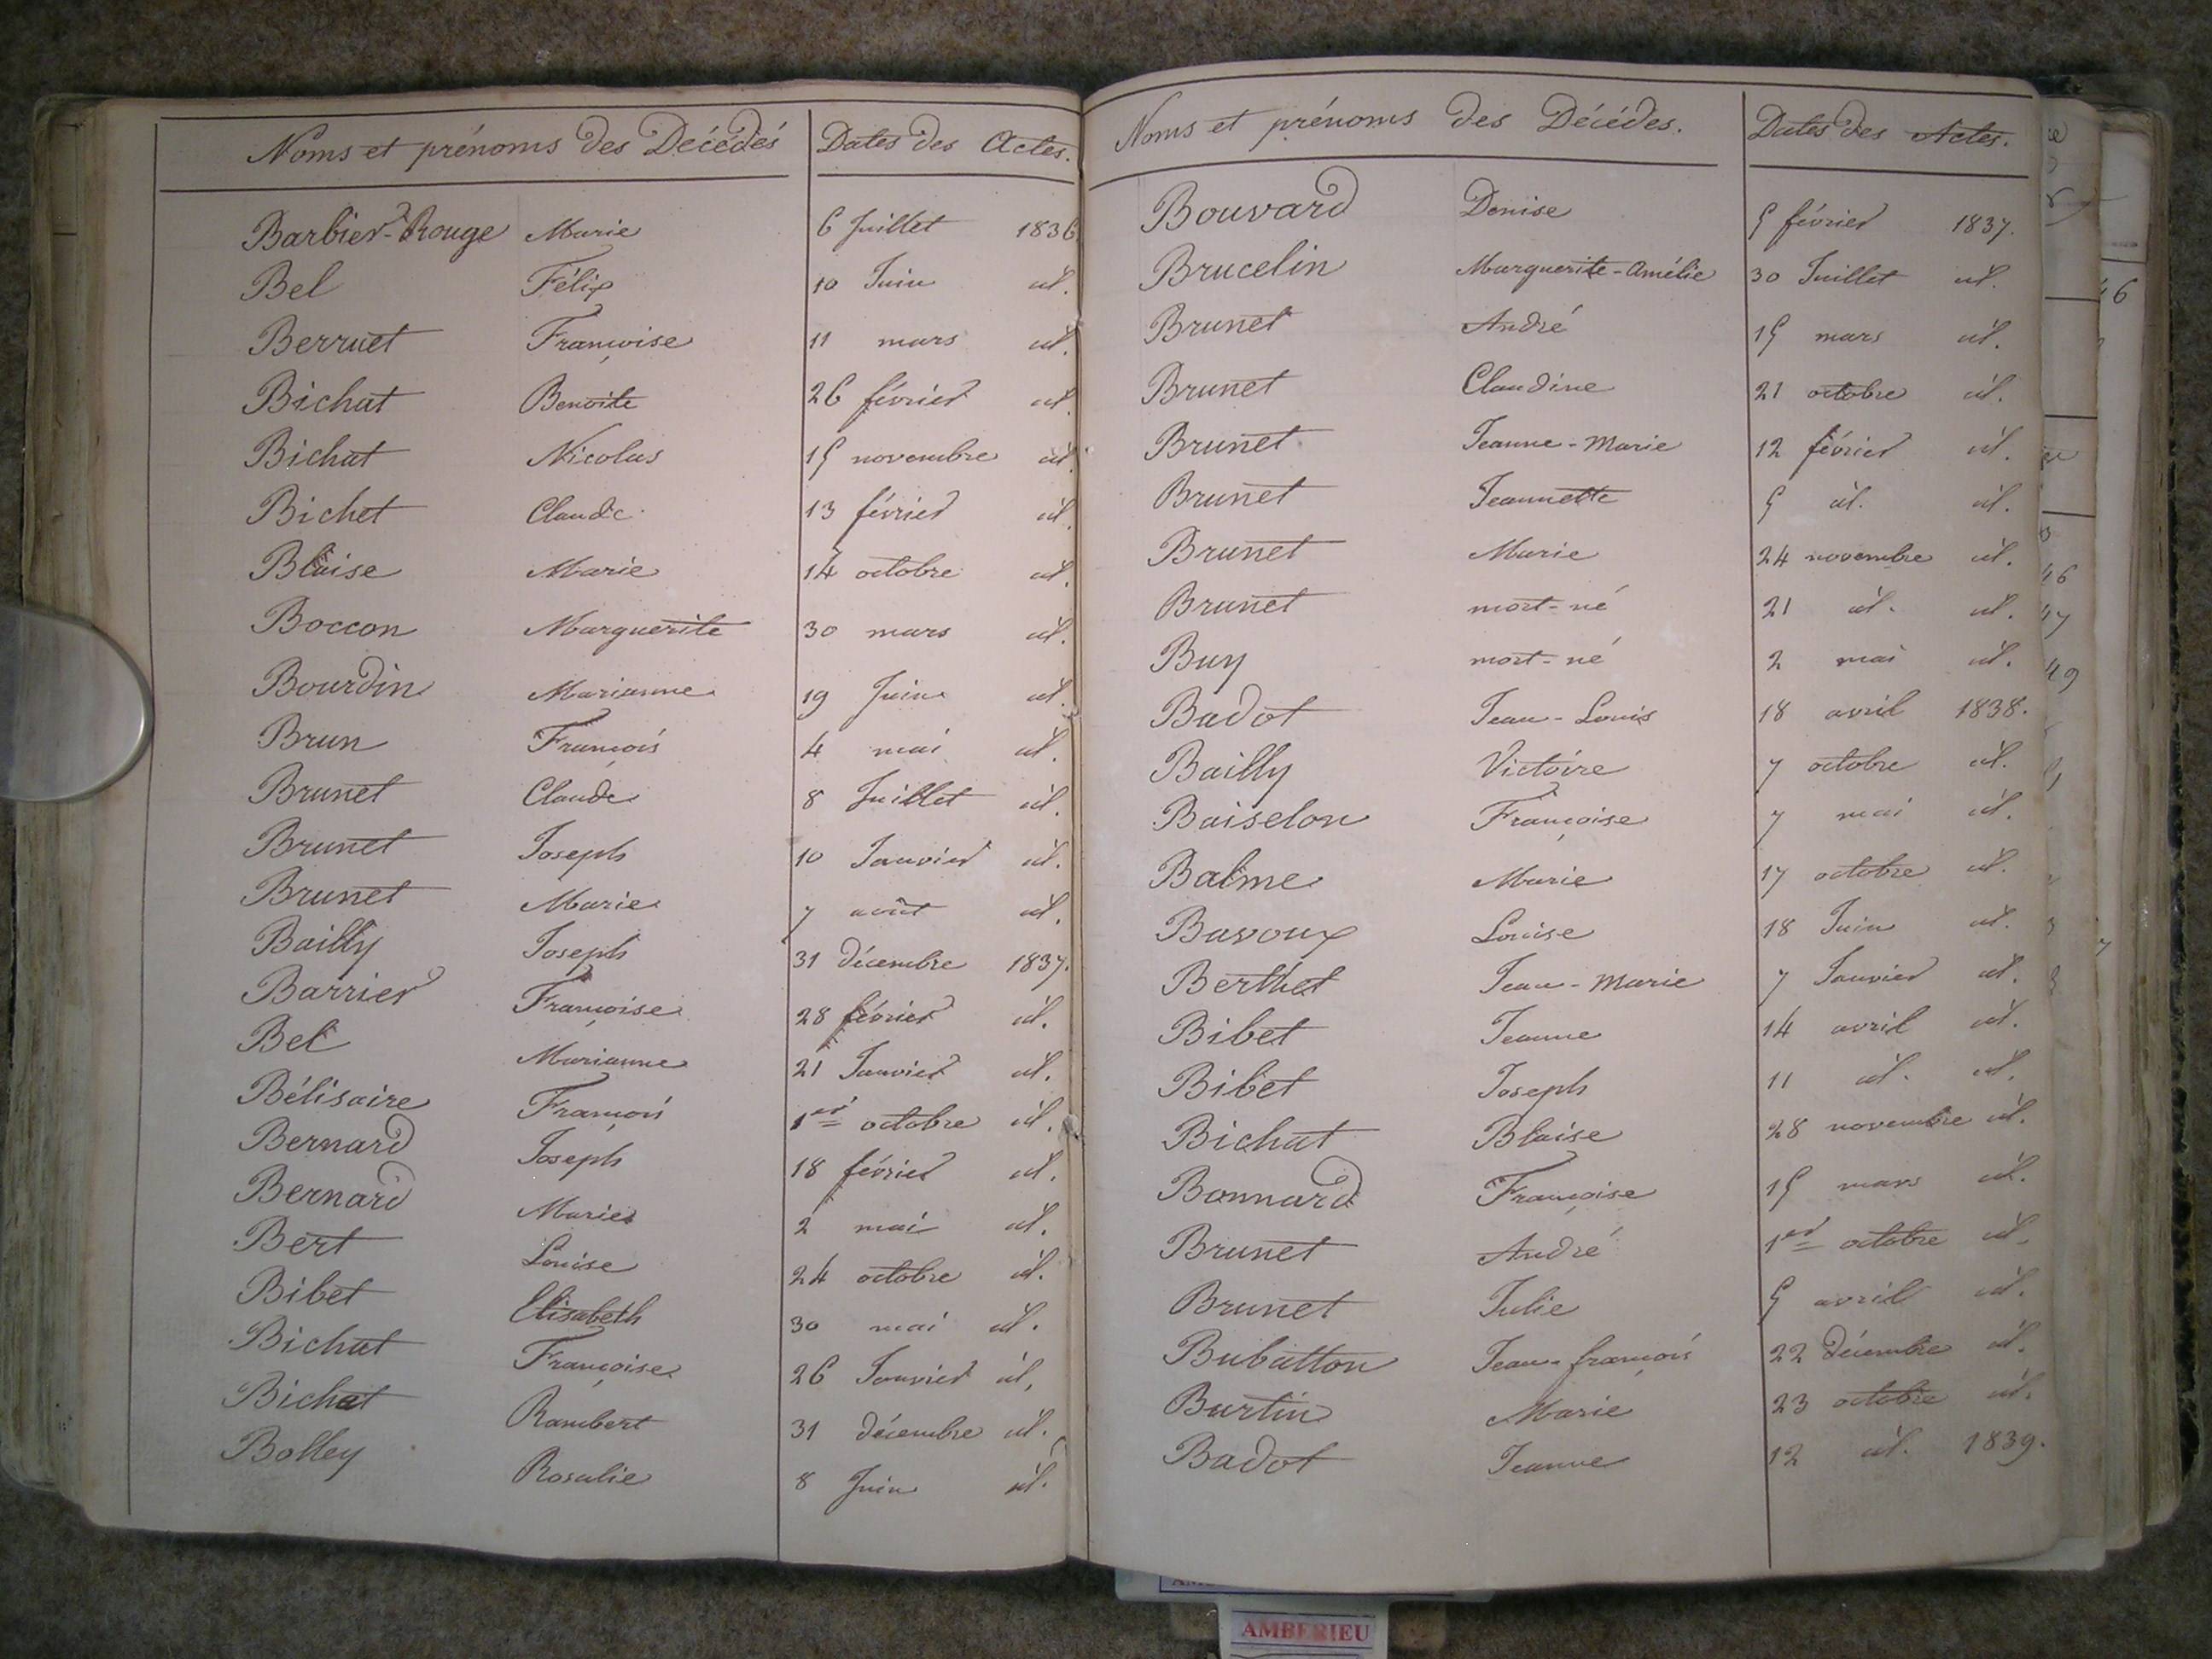 Noms et prénoms des Décédés Dates des Actes.
Barbier-Rouge Marie 6 Juillet 1836
Bel Félix 10 Juin id.
Berruet Françoise 11 mars id.
Bichat Benoite 26 février id.
Bichat Nicolas 15 novembre id.
Bichet Claude 13 février id.
Blaise Marie 14 octobre id.
Boccon Marguerite 30 mars id.
Bourdin Marianne 19 Juin id.
Brun François 4 mai id.
Brunet Claude 8 Juillet id.
Brunet Joseph 10 Janvier id.
Brunet Marie 7 août id.
Bailly Joseph 31 décembre 1837.
Barrier Françoise 28 février id.
Bel Marianne 21 Janvier id.
Bélisaire François 1er octobre id.
Bernard Joseph 18 février id.
Bernard Marie 2 mai id.
Bert Louise 24 octobre id.
Bibet Elisabeth 30 mai id.
Bichat Françoise 26 Janvier id.
Bichat Rambert 31 décembre id.
Bolley Rosalie 8 Juin id.
Noms et prénoms des Décédés. Dates des Actes.
Bouvard Denise 5 février 1837.
Brucelin Marguerite-Amélie 30 Juillet id.
Brunet André 15 mars id.
Brunet Claudine 21 octobre id.
Brunet Jeanne-Marie 12 février id.
Brunet Jeannette 5 id. id.
Brunet Marie 24 novembre id.
Brunet mort-né 21 id. id.
Buy mort-né 2 mai id.
Badot Jean-Louis 18 avril 1838.
Bailly Victoire 7 octobre id.
Baiselon Françoise 7 mai id.
Balme Marie 17 octobre id.
Bavoux Louise 18 Juin id.
Berthet Jean-Marie 7 Janvier id.
Bibet Jeanne 14 avril id.
Bibet Joseph 11 id. id.
Bichat Blaise 28 novembre id.
Bonnard Françoise 15 mars id.
Brunet André 1er octobre id.
Brunet Julie 5 avril id.
Bubatton Jean-françois 22 décembre id.
Burtin Marie 23 octobre id.
Badot Jeanne 12 id. 1839.
AMBERIEU